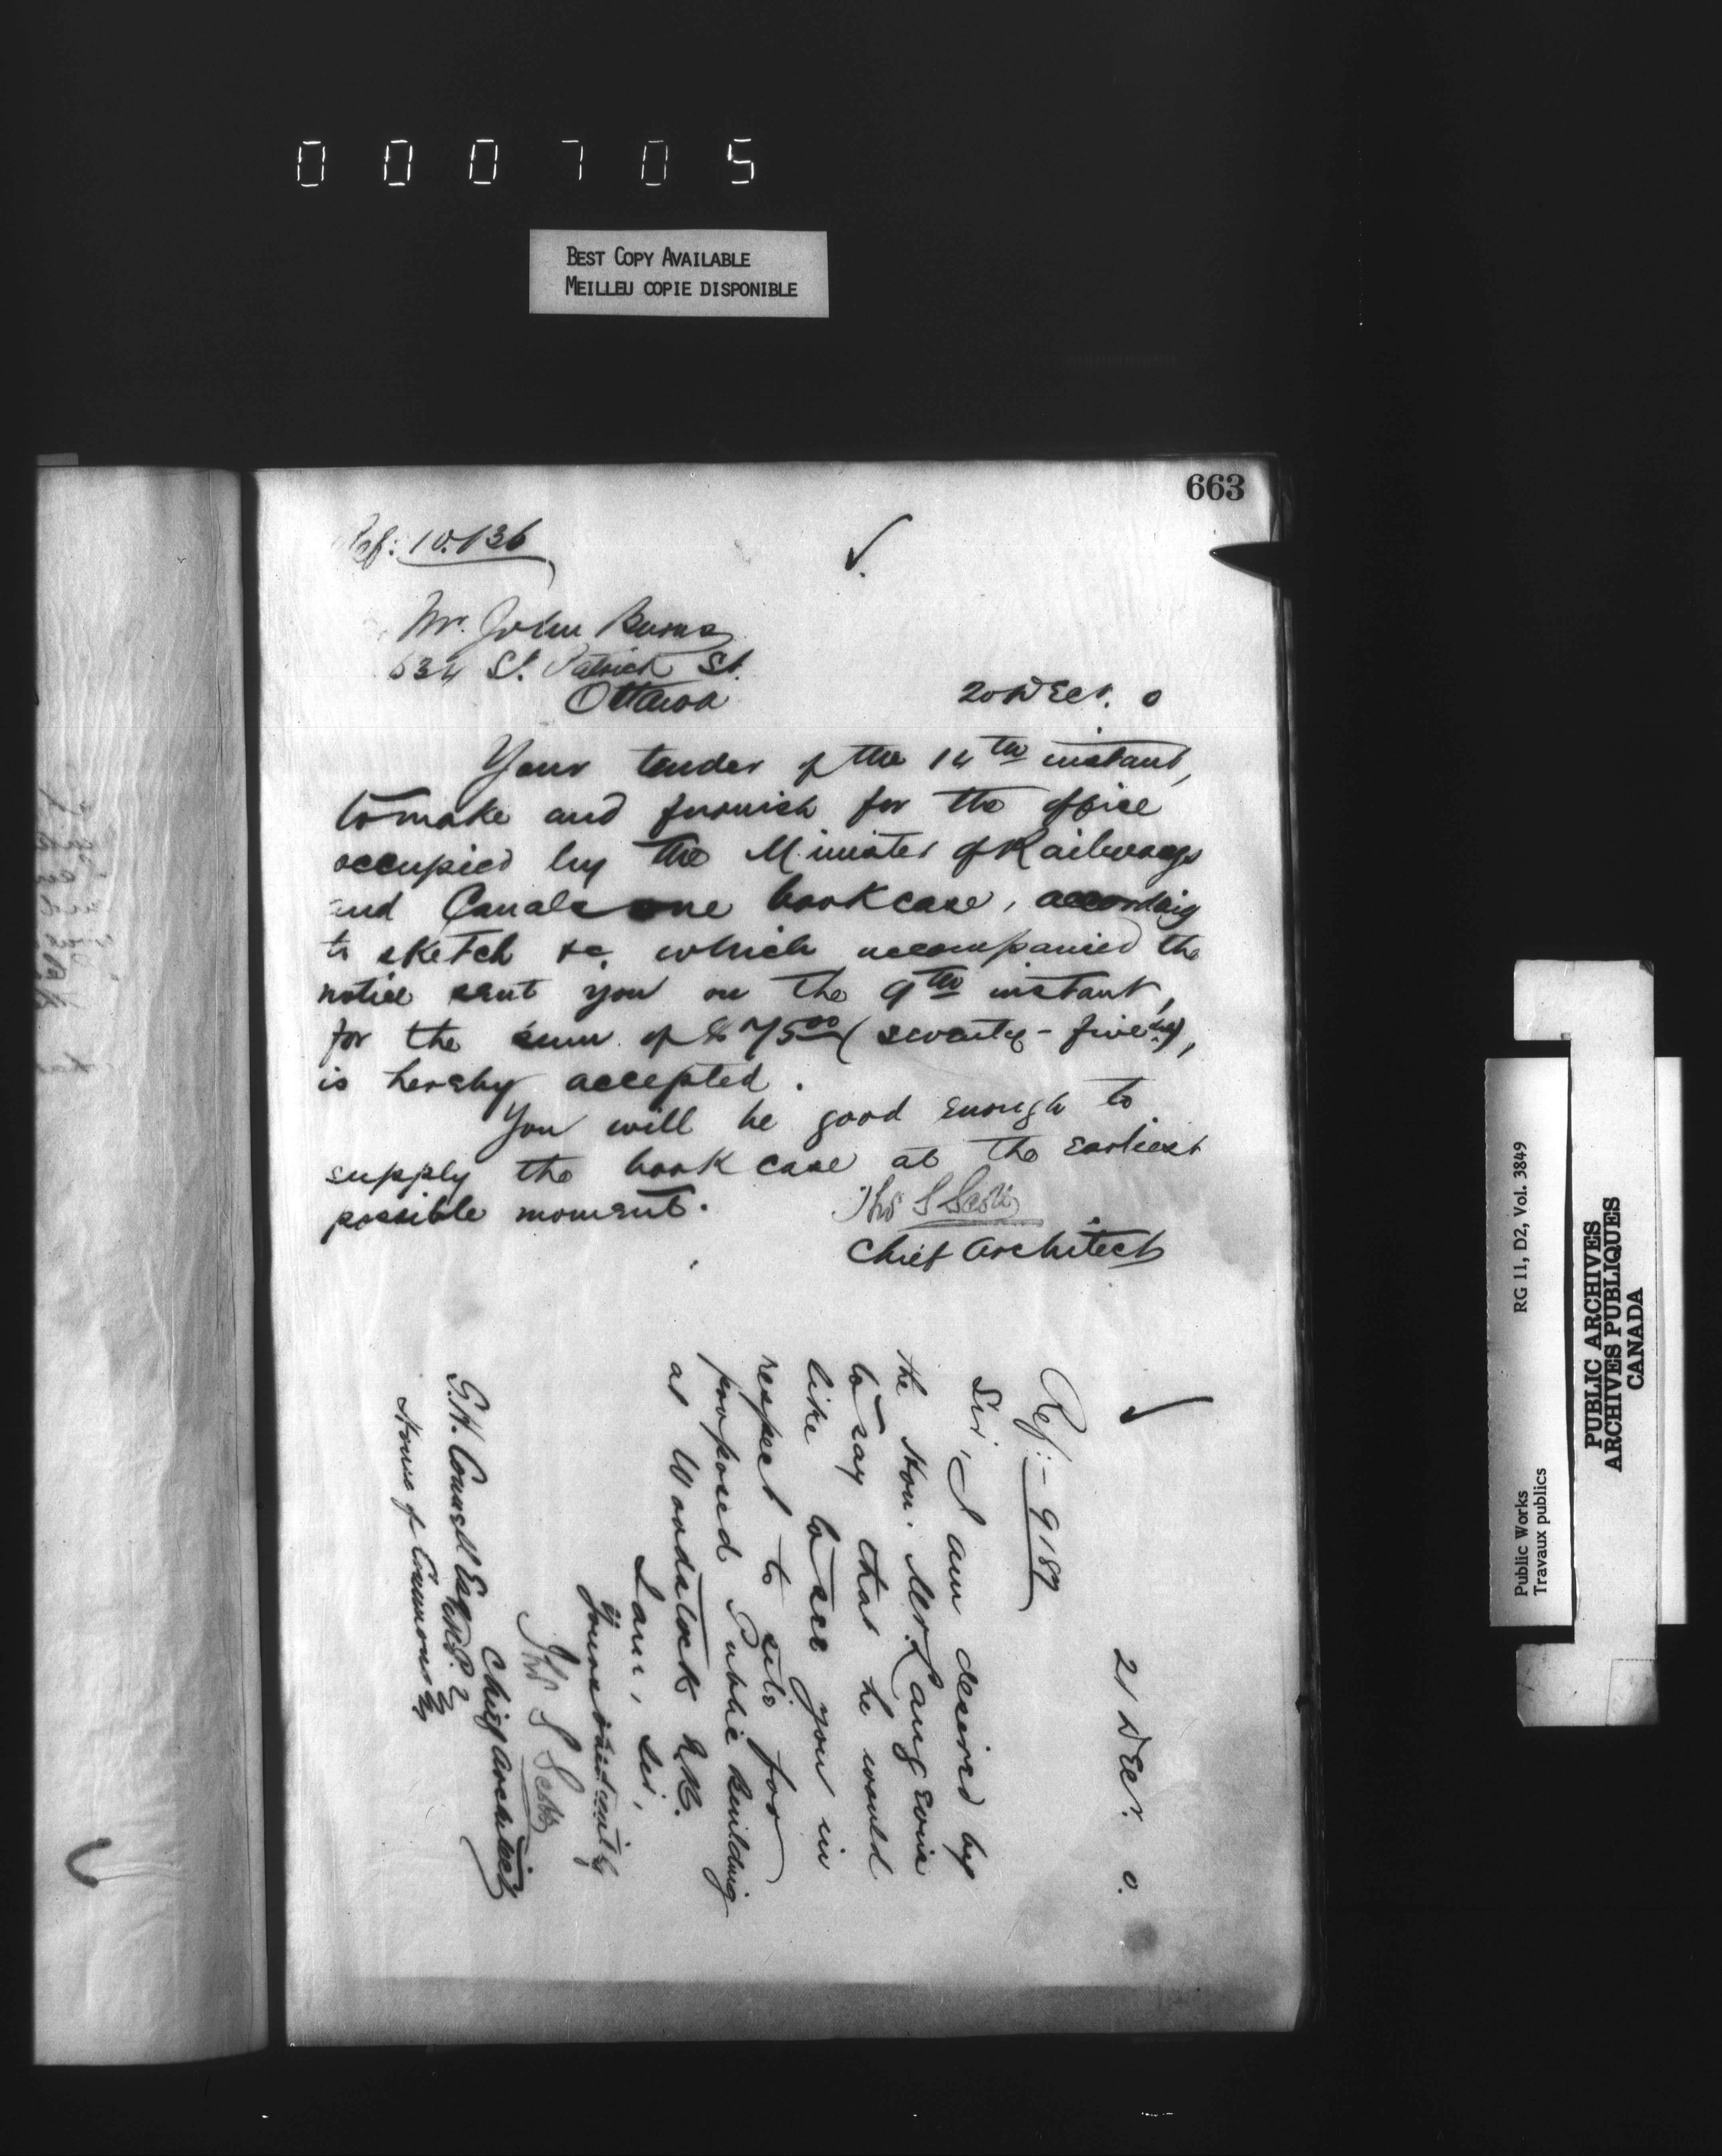 000705
BEST COPY AVAILABLE
MEILLEU COPIE DISPONIBLE
663
Ref: 10.136
Mr. John Burns
534 St. Patrick St.
Ottawa
20 Decr. 0
Your tender of the 14th instant,
to make and furnish for the office
occupied by the Minister of Railways
and Canals one book case, according
to sketch &c. which accompanied the
notice sent you on the 9th instant,
for the sum of $75.00 (seventy-five
is hereby accepted.
You will be good enough to
supply the book case at the earliest
possible moment.
Thos S Scott
Chief Architect
Ref:- 9187
21 Decr. 0.
Sir, I am desired by
the Hon. Mr. Langevin
to say that he would
like to see you in
respect to site for
proposed Public Building
at Woodstock N.B.
I am, Sir,
Your obedient
Thos S Scott
Chief Architect
G.H. Connell Esq. M.P.
House of Commons
RG 11, D2, Vol. 3849
Public Works
Travaux publics
PUBLIC ARCHIVES
ARCHIVES PUBLIQUES
CANADA